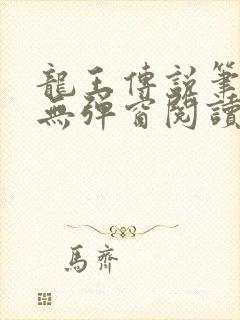 龍王傳說筆
無彈窗閱讀
馬齊